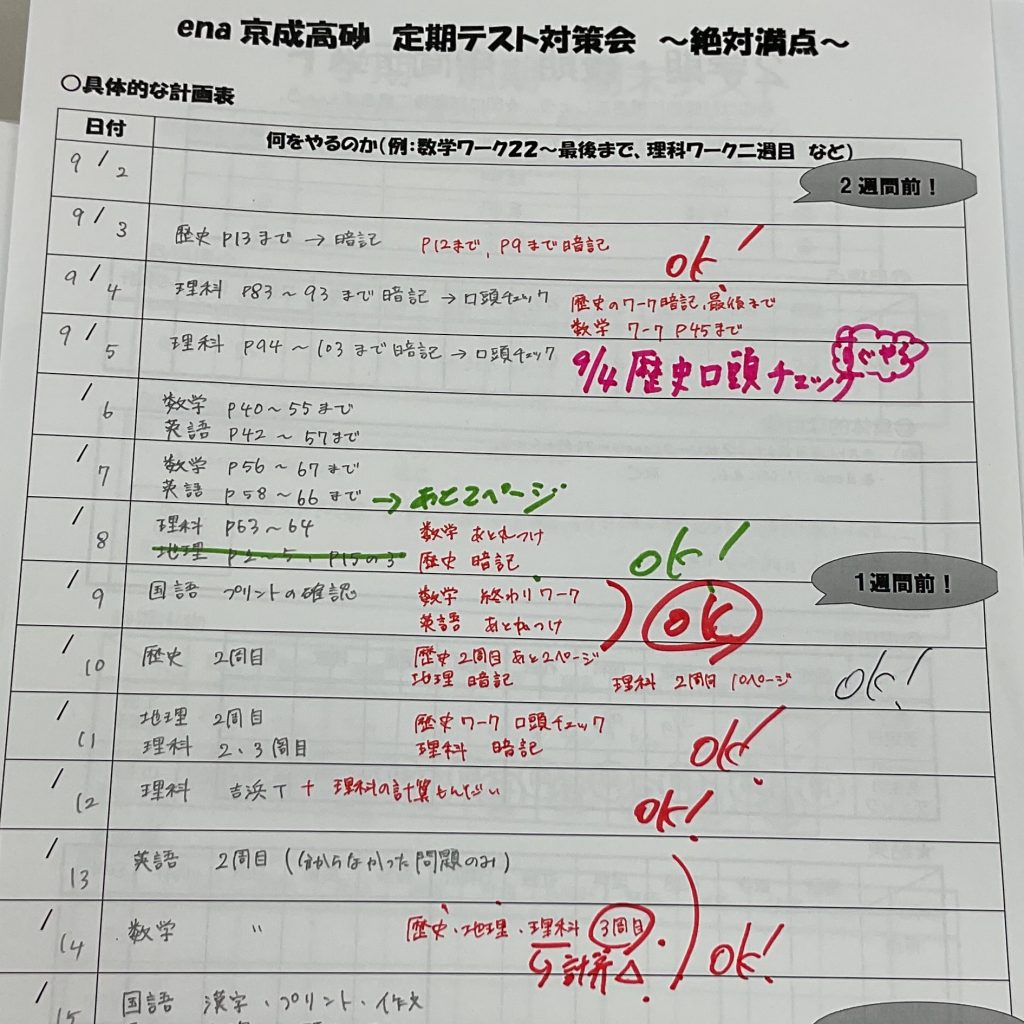 ena 京成高砂 定期テスト対策会 ～絶対満点～
○具体的な計画表
日付 何をやるのか(例:数学ワーク22～最後まで、理科ワーク二週目 など)
9/2
2週間前!
9/3 歴史 P13まで → 暗記 P12まで, P9まで暗記 ok!
9/4 理科 P83～93まで暗記 → 口頭チェック 歴史のワーク暗記,最後まで
数学 ワーク P45まで
9/5 理科 P94～103まで暗記 → 口頭チェック 9/4 歴史口頭チェック すぐやる
/6 数学 P40～55まで
英語 P42～57まで
/7 数学 P56～67まで
英語 P58～66まで → あと2ページ
/8 理科 P63～64 数学 あと丸つけ ok!
地理 P2～5, P15の3 歴史 暗記
1週間前!
/9 国語 プリントの確認 数学 終わりワーク ok
英語 あと丸つけ
/10 歴史 2周目 歴史 2周目 あと2ページ
地理 暗記 理科 2周目 10ページ ok!
/11 地理 2周目 歴史ワーク 口頭チェック ok!
理科 2、3周目 理科 暗記
/12 理科 吉浜T + 理科の計算もんだい ok!
/13 英語 2周目 (分からなかった問題のみ)
/14 数学 〃 歴史・地理・理科 3周目 ok!
↳計算△
/15 国語 漢字・プリント・作文